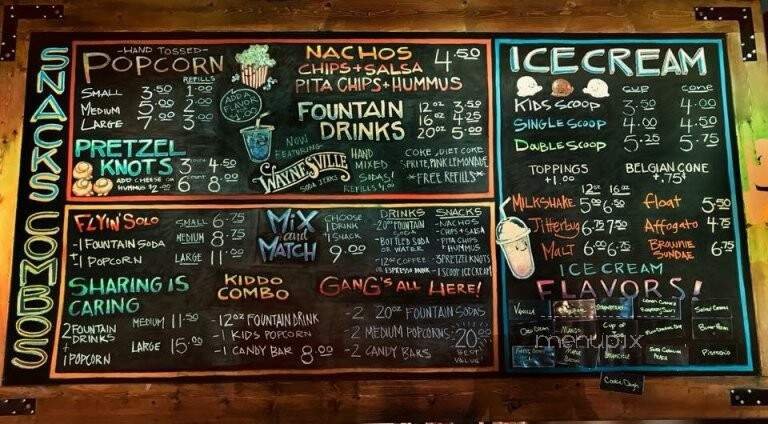 SNACKS COMBOS
-HAND TOSSED-
POPCORN
REFILLS
SMALL 3.50 1.00
MEDIUM 5.00 2.00
LARGE 7.00 3.00
ADD A FLAVOR
PRETZEL
KNOTS
3 COUNT 4.50
ADD CHEESE OR
HUMMUS $2.00
6 COUNT 8.00
NACHOS
CHIPS + SALSA 4.50
PITA CHIPS + HUMMUS
FOUNTAIN
DRINKS
12oz 3.50
16oz 4.25
20oz 5.00
NOW
FEATURING
WAYNESVILLE
SODA JERKS
HAND
MIXED
SODAS!
REFILLS
COKE, DIET COKE
SPRITE, PINK LEMONADE
*FREE REFILLS*
FLYIN' SOLO
-1 FOUNTAIN SODA
-1 POPCORN
SMALL 6.75
MEDIUM 8.75
LARGE 11.00
MIX
and
MATCH
CHOOSE
1 DRINK
1 SNACK
9.00
DRINKS
-20oz FOUNTAIN
SODA
-BOTTLED SODA
OR WATER
-12oz COFFEE
OR ESPRESSO DRINK
SNACKS
-NACHOS
-CHIPS + SALSA
-PITA CHIPS
+ HUMMUS
-3 PRETZEL KNOTS
-1 SCOOP ICE CREAM
SHARING IS
CARING
2 FOUNTAIN
DRINKS
1 POPCORN
MEDIUM 11.50
LARGE 15.00
KIDDO
COMBO
-12oz FOUNTAIN DRINK
-1 KIDS POPCORN
-1 CANDY BAR 8.00
GANG'S ALL HERE!
-2 20oz FOUNTAIN SODAS
-2 MEDIUM POPCORNS
-2 CANDY BARS
20.00
BEST
VALUE
ICE CREAM
CUP CONE
KIDS SCOOP 3.50 4.00
SINGLE SCOOP 4.00 4.50
DOUBLE SCOOP 5.25 5.75
TOPPINGS
+1.00
BELGIAN CONE
+.75¢
12oz 16oz
MILKSHAKE 5.00 6.50
Jitterbug 6.75 7.50
MALT 6.00 6.75
Float 5.50
Affogato 4.75
BROWNIE
SUNDAE 6.75
ICE CREAM
FLAVORS!
Vanilla
Salted Caramel
Mango
Cup of
Butter Pecan
Pistachio
Cookie Dough
menupix